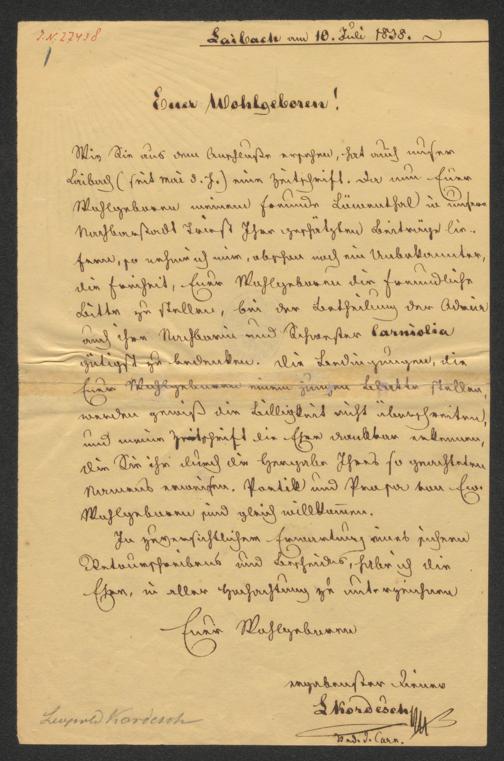 I.N. 27438
1
Laibach am 10. Juli 1838.
Euer Wohlgeboren!
Wie Sie aus dem Anschluße ersehen, hat auch unser
Laibach (seit Mai d. J.) eine Zeitschrift. Da nun Euer
Wohlgeboren meinem Freunde Löwenthal in unserer
Nachbarstadt Triest Ihre geschätzten Beiträge lie-
fern, so nehme ich mir, obschon noch ein Unbekannter,
die Freiheit, Euer Wohlgeboren die freundliche
Bitte zu stellen, bei der Betheilung der Adria
auch ihre Nachbarin und Schwester Carniolia
gütigst zu bedenken. Die Bedingungen, die
Euer Wohlgeboren einem jungen Blatte stellen,
werden gewiß die Billigkeit nicht überschreiten,
und meine Zeitschrift die Ehre dankbar erkennen,
die Sie ihr durch die Hergabe Ihres so geachteten
Namens erweisen. Poetik und Prosa von Eu.
Wohlgeboren sind gleich willkommen.
In zuversichtlicher Erwartung eines sichern
Retourschreibens und Bescheides, habe ich die
Ehre, in aller Hochachtung zu unterzeichnen
Euer Wohlgeboren
ergebenster Diener
LKordesch
Red. d. Carn.
Leopold Kordesch